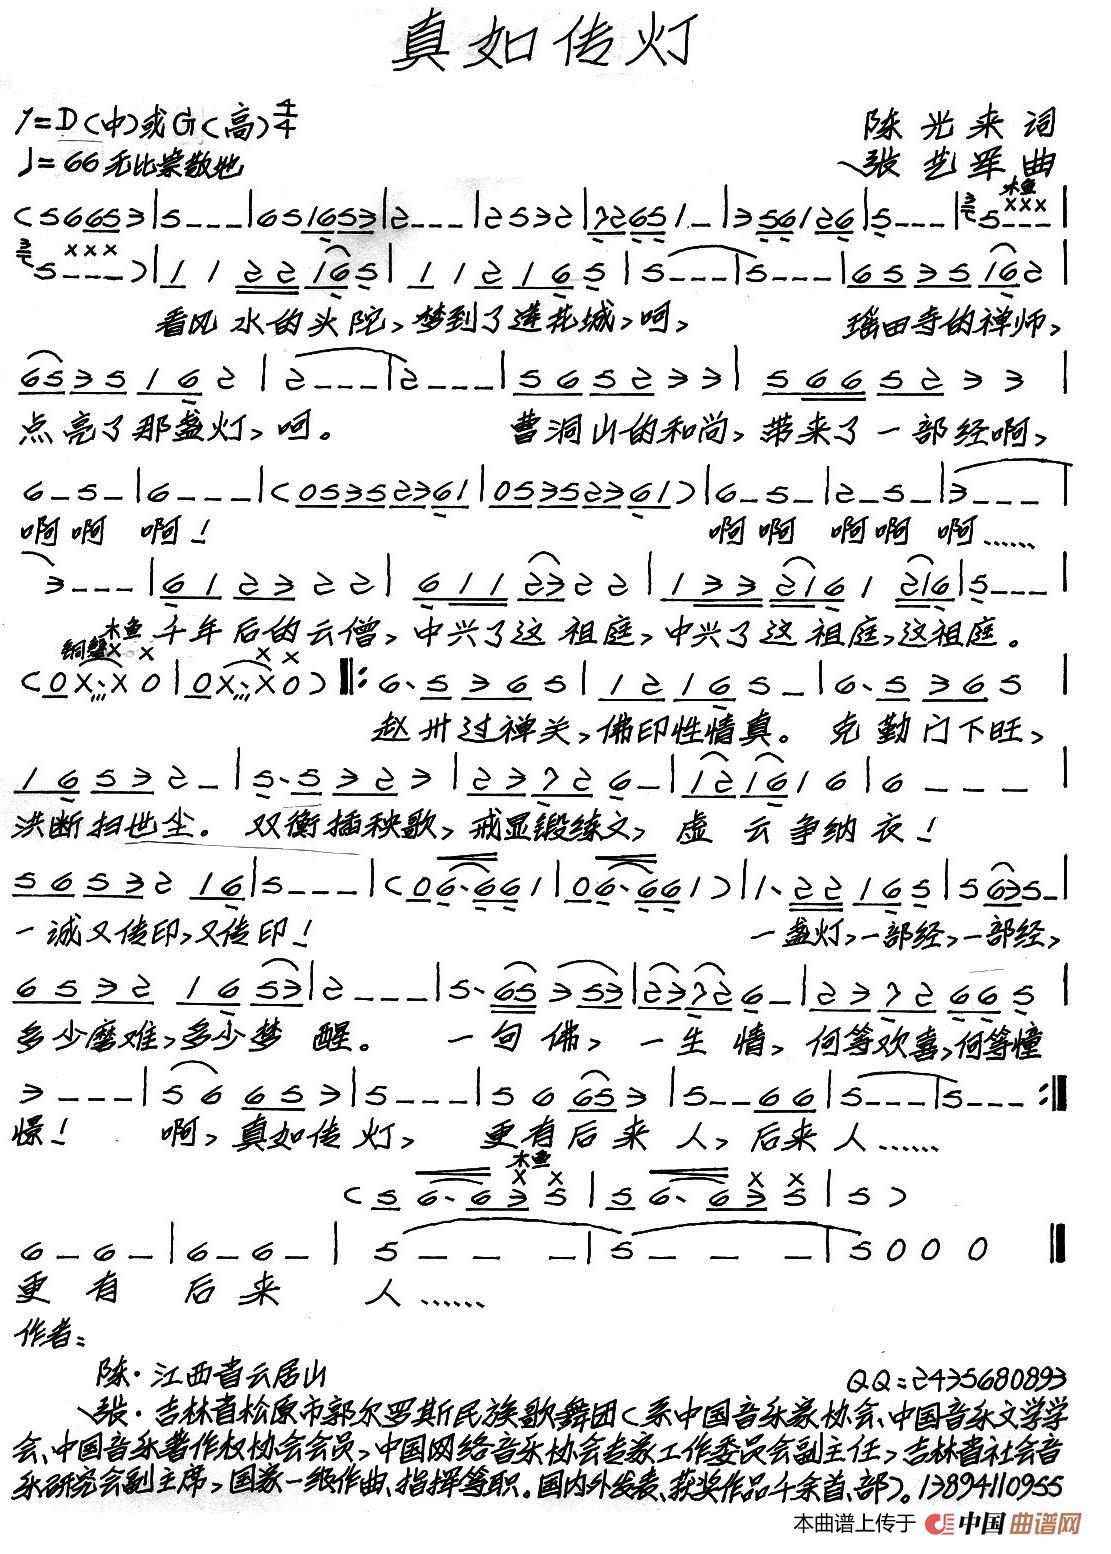 真如传灯
1=D(中)或G(高)4/4
陈光来词
♩=66无比崇敬地
张艺军曲
木鱼
看风水的头陀,梦到了莲花城,呵, 瑶田寺的禅师,
点亮了那盏灯,呵。 曹洞山的和尚,带来了一部经啊,
啊啊 啊! 啊啊 啊啊 啊……
千年后的云僧,中兴了这祖庭,中兴了这祖庭,这祖庭。
铜磬 木鱼
赵州过禅关,佛印性情真。克勤门下旺,
洪断扫世尘。双衡插秧歌,戒显锻练文,虚云争纳衣!
一诚又传印,又传印! 一盏灯,一部经,一部经,
多少磨难,多少梦醒。 一句佛,一生情,何等欢喜,何等憧
憬! 啊,真如传灯, 更有后来人,后来人……
木鱼
更有后来人……
作者:
陈·江西省云居山
QQ:2435680893
张·吉林省松原市郭尔罗斯民族歌舞团(系中国音乐家协会、中国音乐文学学
会、中国音乐著作权协会会员,中国网络音乐协会专家工作委员会副主任,吉林省社会音
乐研究会副主席,国家一级作曲、指挥等职。国内外发表、获奖作品千余首、部)。13894110955
本曲谱上传于 中国曲谱网